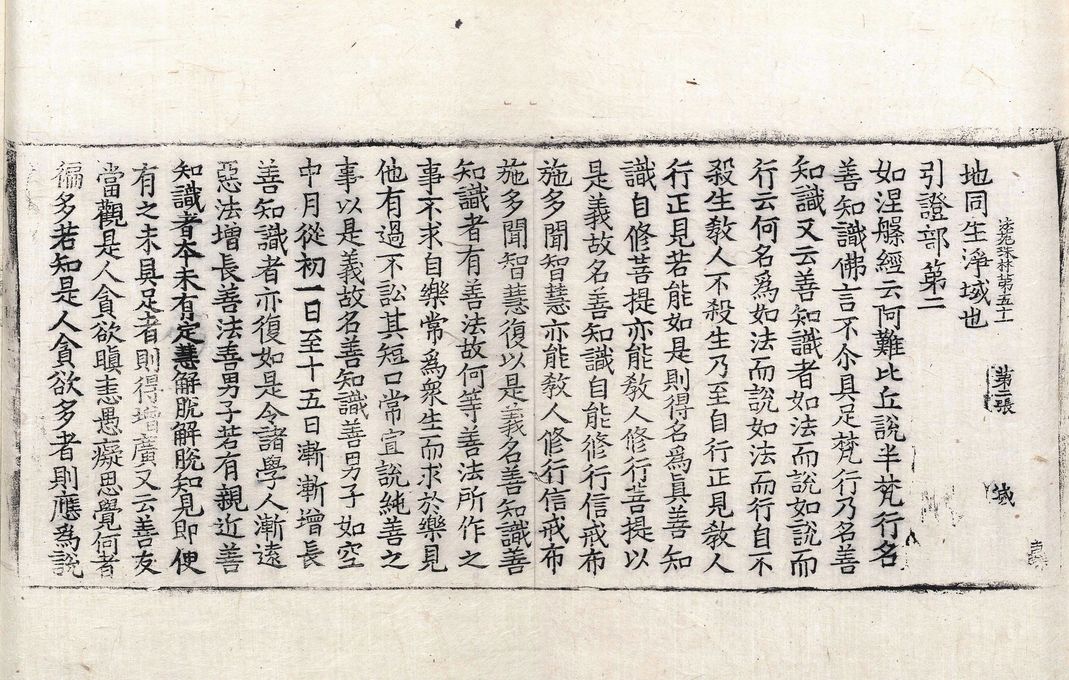 法苑珠林第五十一 第二張 域
地同生淨域也
引證部第二
如涅槃經云阿難比丘說半梵行名
善知識佛言不尒具足梵行乃名善
知識又云善知識者如法而說如說而
行云何名為如法而說如法而行自不
殺生教人不殺生乃至自行正見教人
行正見若能如是則得名為真善知
識自修菩提亦能教人修行菩提以
是義故名善知識自能修行信戒布
施多聞智慧亦能教人修行信戒布
施多聞智慧復以是義名善知識善
知識者有善法故何等善法所作之
事不求自樂常為衆生而求於樂見
他有過不訟其短口常宣說純善之
事以是義故名善知識善男子如空
中月從初一日至十五日漸漸增長
善知識者亦復如是令諸學人漸遠
惡法增長善法善男子若有親近善
知識者本未有定慧解脫解脫知見即便
有之未具足者則得增廣又云善友
當觀是人貪欲瞋恚愚癡思覺何者
徧多若知是人貪欲多者則應為說